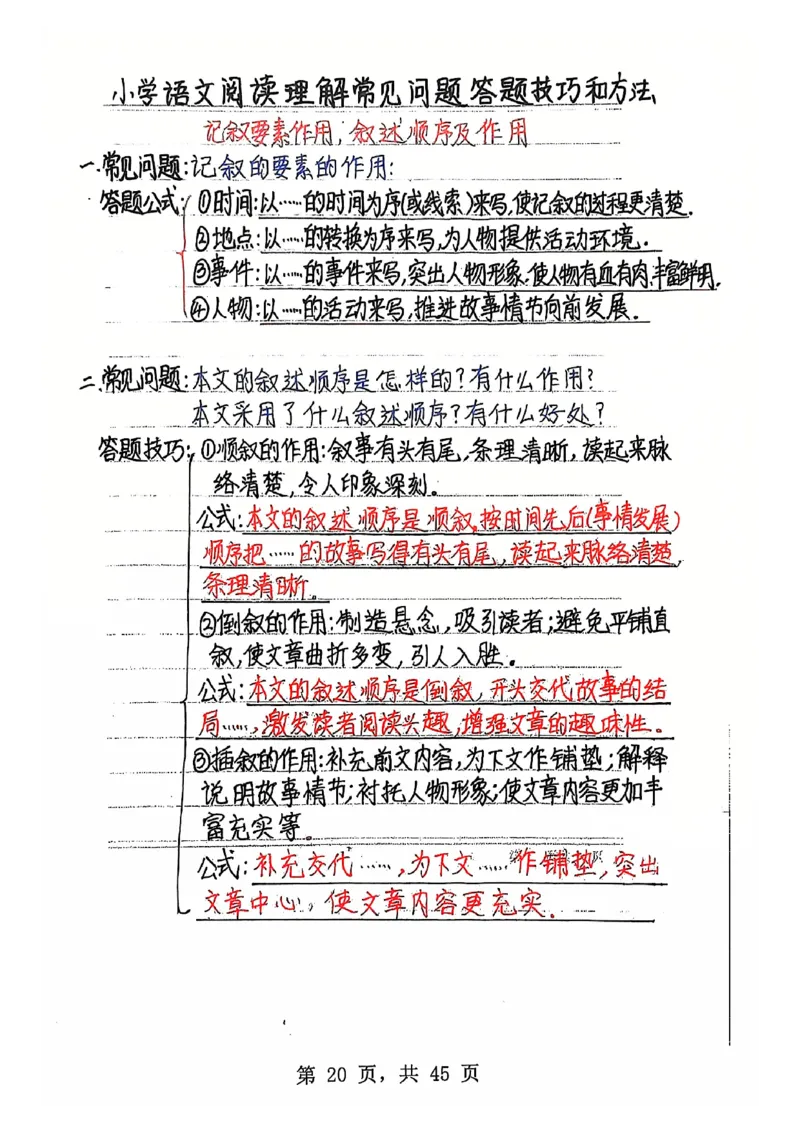 小学语文阅读理解常见问题答题技巧和方法
记叙要素作用,叙述顺序及作用
一.常见问题:记叙的要素的作用:
答题公式:①时间:以……的时间为序(或线索)来写,使记叙的过程更清楚.
②地点:以……的转换为序来写,为人物提供活动环境.
③事件:以……的事件来写,突出人物形象.使人物有血有肉.丰富鲜明.
④人物:以……的活动来写,推进故事情节向前发展.
二.常见问题:本文的叙述顺序是怎样的?有什么作用?
本文采用了什么叙述顺序?有什么好处?
答题技巧:①顺叙的作用:叙事有头有尾,条理清晰,读起来脉
络清楚,令人印象深刻.
公式:本文的叙述顺序是顺叙,按时间先后(事情发展)
顺序把……的故事写得有头有尾,读起来脉络清楚,
条理清晰。
②倒叙的作用:制造悬念,吸引读者;避免平铺直
叙,使文章曲折多变,引人入胜。
公式:本文的叙述顺序是倒叙,开头交代故事的结
局……,激发读者阅读兴趣,增强文章的趣味性。
③插叙的作用:补充前文内容,为下文作铺垫;解释
说明故事情节;衬托人物形象;使文章内容更加丰
富充实等。
公式:补充交代……,为下文……作铺垫,突出
文章中心,使文章内容更充实.
第 20 页，共 45 页